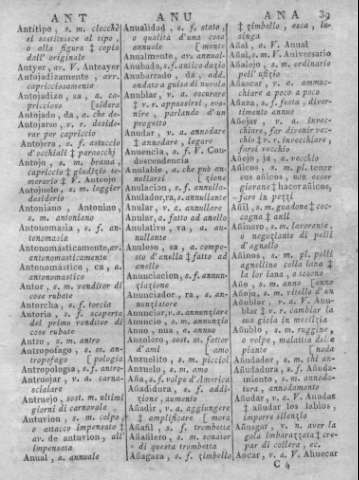 ANT
ANU
ANA 39
Antitipo, s. m. clocchè
el sostituisce al tipo,
o alla figura ‡ copia
dell' originale
Antyer, av. V. Anteayer
Antojadizamente, av.
capricciosamente
Antojadizo, za, a. ca-
priccioso
Antojado, da, a. che de-
Antojarse, v. r. deside-
rar per capriccio
Antojera, s. f. astuccio
d'occhiali ‡ paraocchj
Antojo, s. m. brama,
capriccio ‡ giudizio te-
merario ‡ V. Anteojo
Antojuelo, s. m. leggier
desiderio
Antoniano, Antonino,
s. m. antoniano
Antonomasia, s. f. an-
tonomasia
Antonomásticamente, av.
antonomasticamente
Antonomástico, ca, a.
antonomastico
Antor, s. m. venditor di
cose rubate
Antorcha, s. f. torcia
Antoria, s. f. scoperta
del primo venditor di
cose rubate
Antro, s. m. antro
Antropófago, s. m. an-
tropofago [pologia
Antropologia, s. f. antro-
Antruejar, v. a. carna-
scialare
Antruejo, sost. m. ultimi
giorni di carnovale
Antuvion, s. m. colpo
o attacco impensato ‡
av. de antuvion, all'
impensata
Anual, a. annuale
Anualidad, s. f. stato,
o qualità d'una cosa
annuale [mente
Anualmente, av. annual-
Anubada, s. f. antico dazio
Anubarrado, da, add.
ondato a guisa di nuvola
Anublar, v. a. oscurare
‡ v. r. appassirsi, sva-
nire, parlando d'un
progetto
Anudar, v. a. annodare
‡ annodare, legare
Anuencia, s. f. V. Con-
descendencia
Anulable, a. che può an-
nullarsi [zione
Anulacion, s. f. annulla-
Anulador, ra, s. annullante
Anular, v. a. annullare
Anular, a. fatto ad anello
Anulativo, va, a. an-
nullante
Anuloso, sa, a. compo-
sto d'anella ‡ fatto ad
anello
Anunciacion, s. f. annun-
ziazione
Anunciador, ra, s. an-
nunziatore
Anunciar, v. a. annunziare
Anuncio, s. m. annunzio
Anuo, nua, a. annuo
Anzolero, sost. m. fattor
d'ami [amo
Anzuelito, s. m. piccol
Anzuelo, s. m. amo
Aña, s. f. volpe d'America
Añadidura, s. f. addi-
zione, aumento
Añadir, v. a. aggiungere
‡ amplificare [mora
Añafil, s. f. trombetta
Añafilero, s. m. sonator
di questa trombetta
Añagaza, s. f. zimbello
‡ zimbello, esca, lu-
singa
Añal, a. V. Anual
Añal, s. m. V. Aniversario
Añalejo, s. m. ordinario
pell' ufizio
Añascar, v. a. ammuc-
chiare a poco a poco
Añaza, s. f. festa, diver-
timento annuo
Añejar, v. a. invec-
chiare, far divenir vec-
chio ‡ v. r. invecchiare,
farsi vecchio
Añejo, ja, a. vecchio
Añicos, s. m. pl.
ser añicos, non esser
gierane ‡ hacer añicos,
far in pezzi
Añil, s. m. guadone ‡ coc-
cagna ‡ anil
Añinero, s. m. lavorante,
o negoziante di pelli
d'agnello
Añinos, s. m. pl. pelli
agnelline colla lana ‡
la lor lana, a scuono
Año, s. m. anno [anno
Añojo, s. m. vitello d'un
Añublar, v. a. V. Anu-
blar ‡ v. r. cambiar la
sua gioja in mestizia
Añublo, s. m. ruggine,
o volpe, malattia delle
piante [noda
Añudador, s. m. chi an-
Añudadura, s. f. Añuda-
miento, s. m. annoda-
tura, annodamento
Añudar, v. a. V. Anudar
‡ añudar los labios,
imporre silenzio
Añusgar, v. n. aver la
gola imbarazzata ‡ cre-
par di collera, ec.
Aocar, v. a. V. Ahuecar
C 4